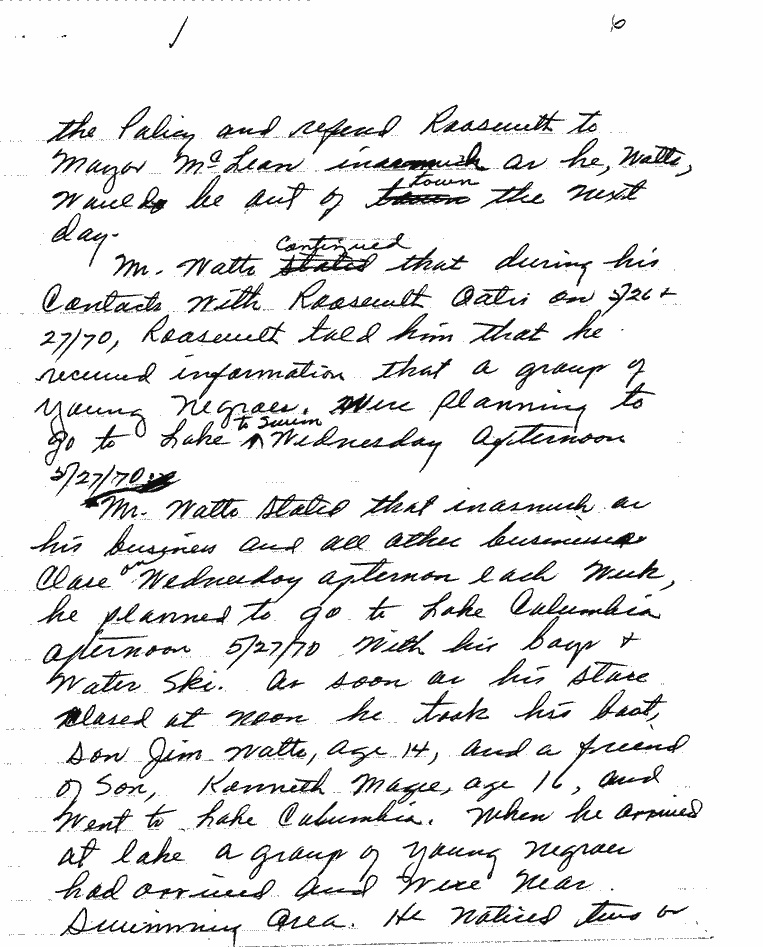 6
the Policy and refered Roosevelt to
Mayor McLean inasmuch as he, Watts,
would be out of town the next
day.
Mr. Watts continued that during his
contacts with Roosevelt Oatis on 5/26 +
27/70, Roosevelt told him that he
received information that a group of
young Negroes were planning to
go to Lake to swim Wednesday afternoon
5/27/70.
Mr. Watts stated that inasmuch as
his business and all other businesses
close on Wednesday afternon each week,
he planned to go to Lake Columbia
afternoon 5/27/70 with his boys +
water ski. As soon as his store
closed at noon he took his boat,
son Jim Watts, age 14, and a friend
of son, Kenneth Magee, age 16, and
went to Lake Columbia. When he arrived
at lake a group of young negroes
had arrived and were near
swimming area. He noticed two or